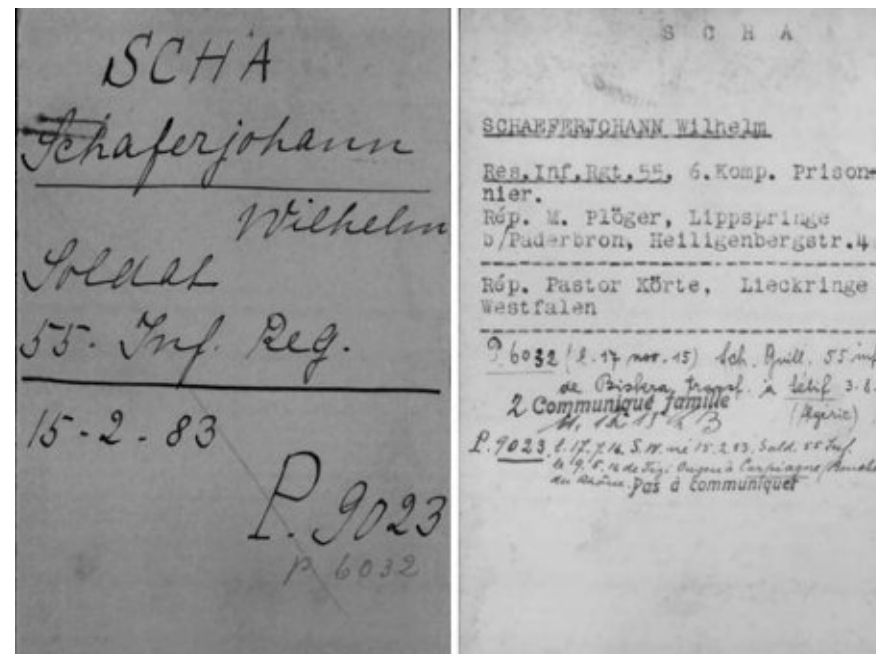 SCHA
Schaferjohann
Wilhelm
Soldat
55. Inf. Reg.
15-2-83
P. 9023
P 6032
S C H A
SCHAEFERJOHANN Wilhelm
Res.Inf.Rgt.55, 6.Komp. Prison-
nier.
Rép. M. Plöger, Lippspringe
b/Paderbron, Heiligenbergstr.4
Rép. Pastor Körte, Lieckringe
Westfalen
P 6032 (l. 17 nov. 15) Sch. Guill. 55 inf
de Biskra transf. à Sétif 3.8.
2 Communiqué famille (Algérie)
P. 9023 l. 17.7.16. S. W. né 15.2.83. Sold. 55 Inf.
le 9.5.16 de Tizi Ouzou à Carpiagne
du Rhône. Pas à communiquer